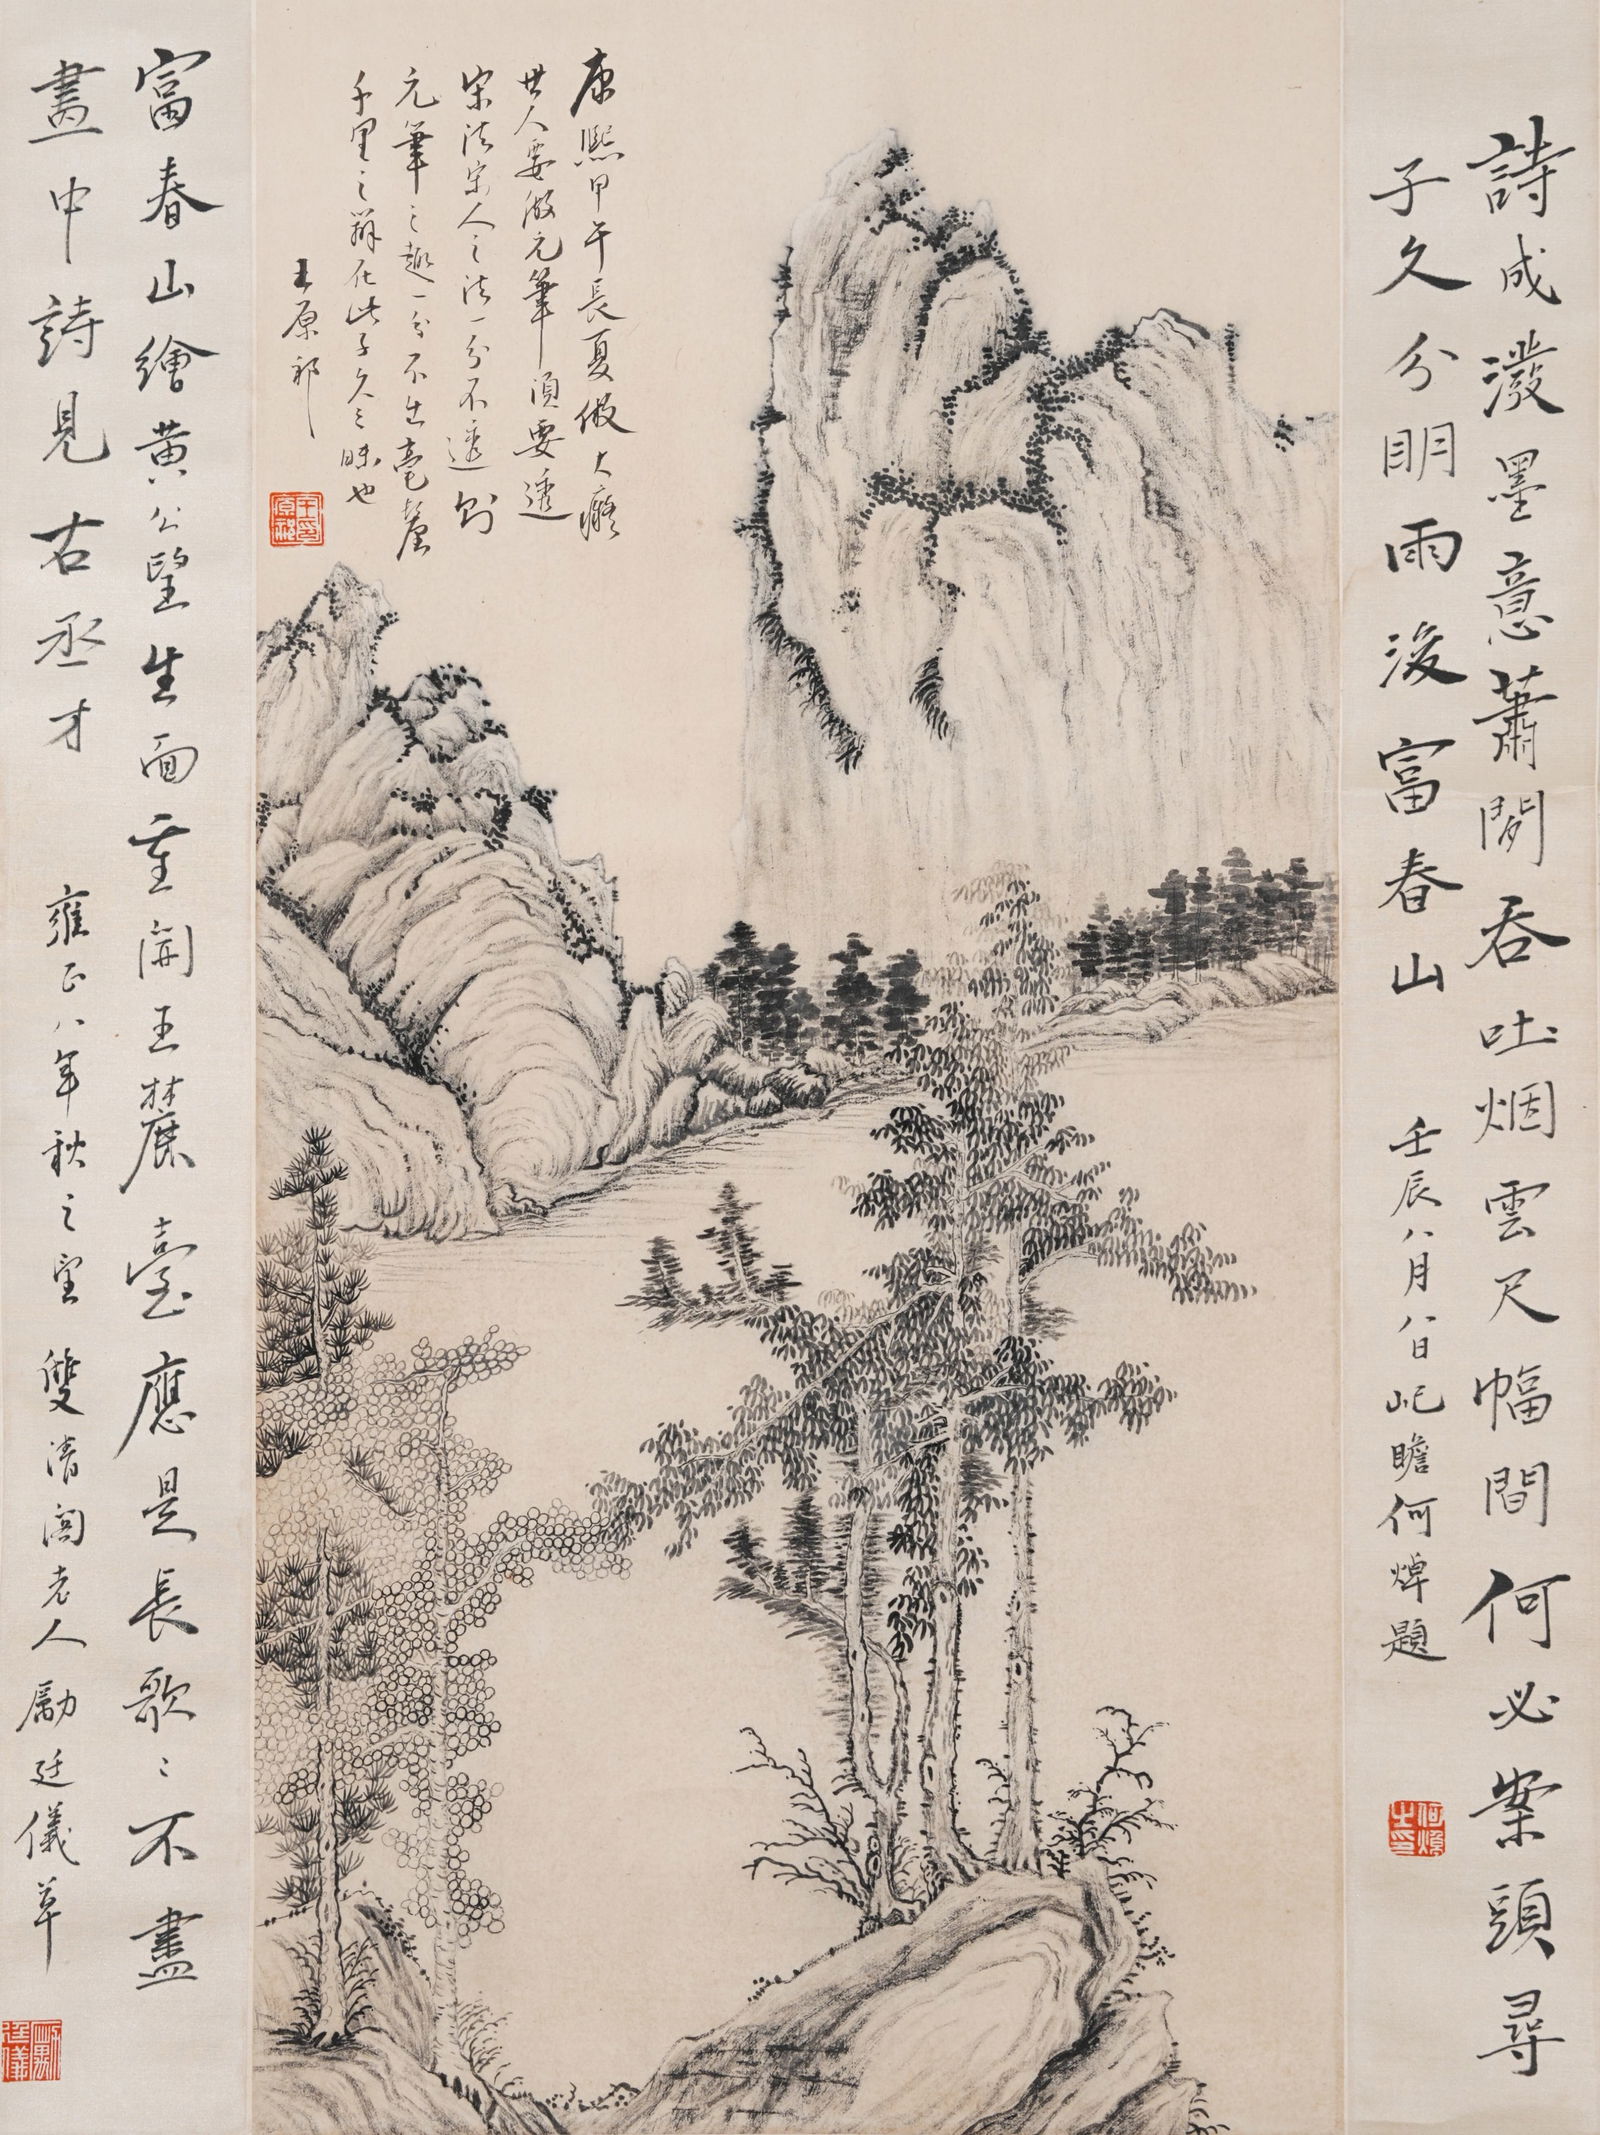 詩成潑墨意蕭閒吞吐烟雲尺幅間何必案頭尋
子久分明雨後富春山 壬辰八月八日屺瞻何焯題
何焯之印
康熙甲午長夏倣大癡
世人要倣元筆須要透
宋法宋人之法一分不透則
元筆之趣一分不出毫釐
千里之辨在此子久之味也
王原祁
富春山繪黃公望生面重開王麓臺應是長歌〻不盡
畫中詩見右丞才 雍正八年秋之望 雙清閣老人勵廷儀草
勵廷儀